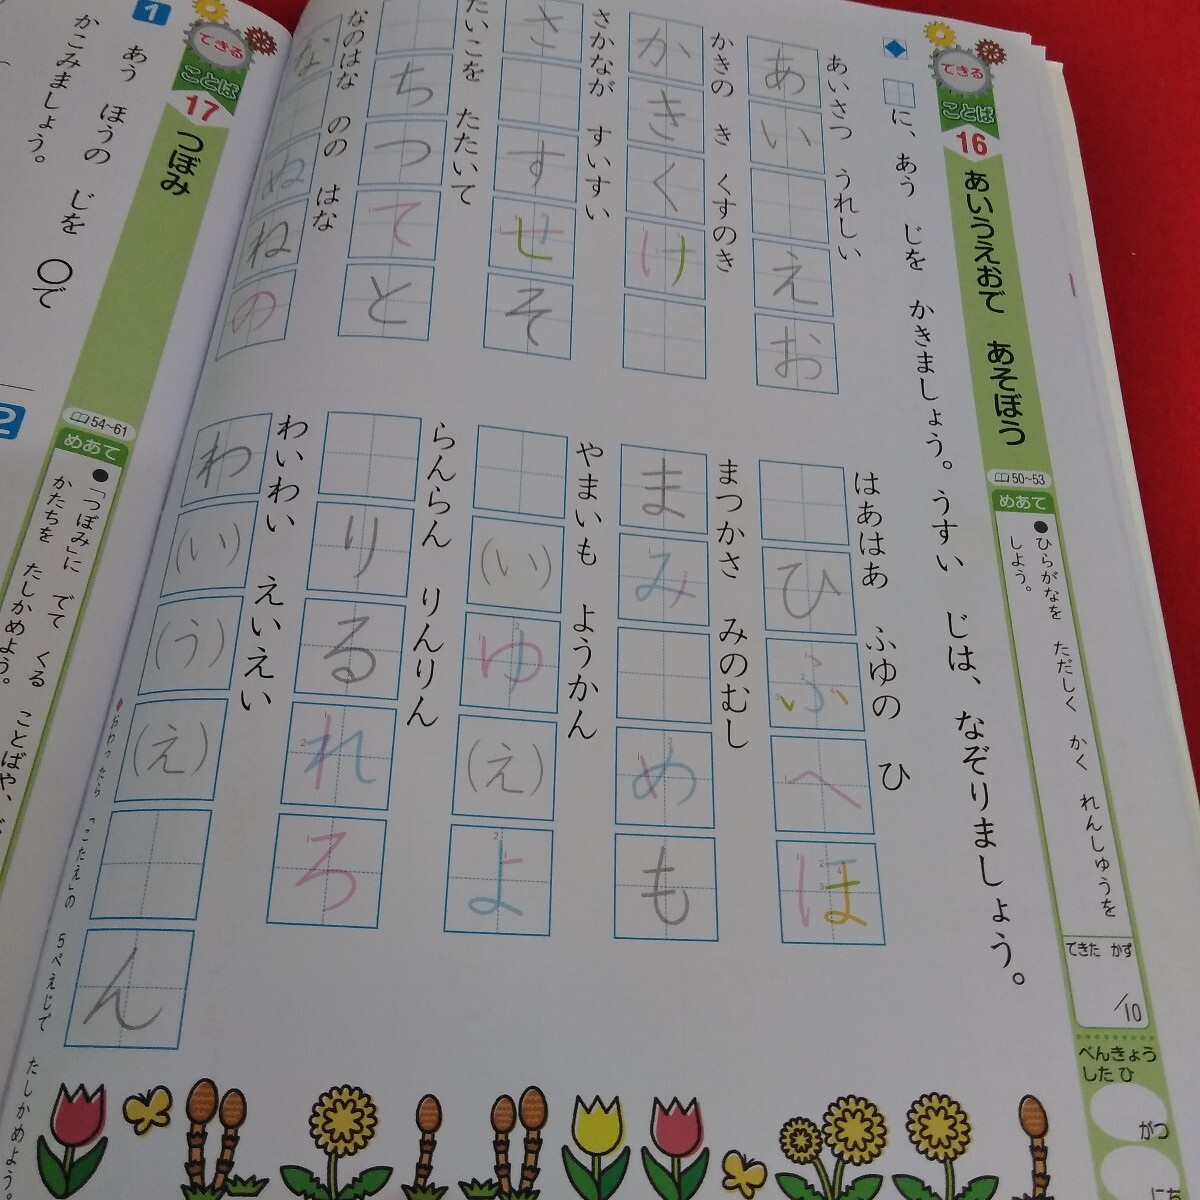 できる
ことば
16
あいうえおで あそぼう
50~53
めあて
●ひらがなを ただしく かく れんしゅうを
しよう。
できた かず
/10
べんきょう
した ひ
がつ
にち
に、あう じを かきましょう。うすい じは、なぞりましょう。
あいさつ うれしい
あ い え お
かきの き くすのき
か き く け
さかなが すいすい
さ す せ そ
たいこを たたいて
ち つ て と
なのはな のの はな
な ぬ ね の
はあはあ ふゆの ひ
ひ ふ へ ほ
まつかさ みのむし
ま み め も
やまいも ようかん
(い) ゆ (え) よ
らんらん りんりん
り る れ ろ
わいわい えいえい
わ (い) (う) (え) ん
おわったら 「こたえ」の 5ぺえじで たしかめよう。
できる
ことば
17
つぼみ
54~61
めあて
●「つぼみ」に でて くる ことばや、
かたちを たしかめよう。
1
あう ほうの じを ○で
かこみましょう。
2